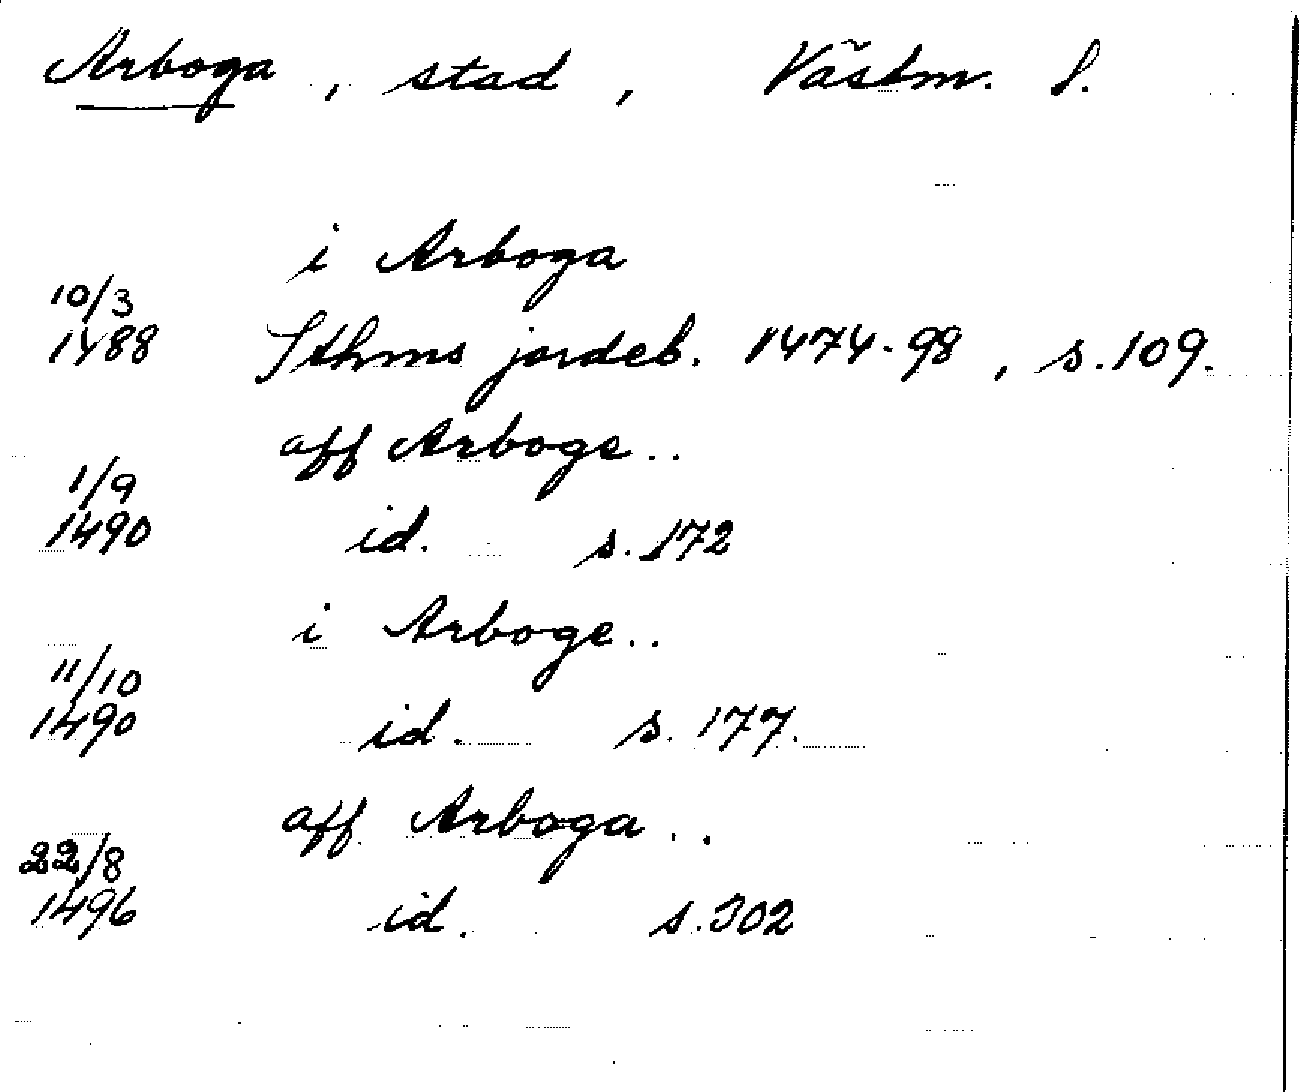 Arboga, stad, Västm. l.
i Arboga
10/3
1488 Sthms jordeb. 1474-98, s.109.
aff Arboge..
1/9
1490 id. s.172
i Arboge..
11/10
1490 id. s.177.
aff Arboga..
22/8
1496 id. s.302